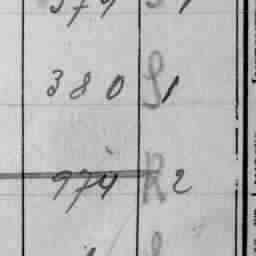 380 S1
974 R2